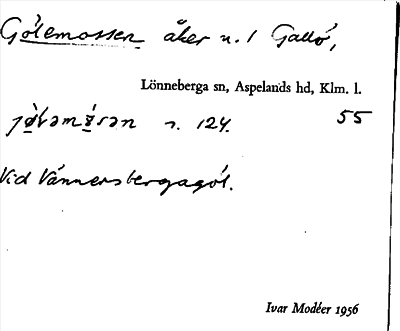 Gölemossen åker n. 1 Gallö,
Lönneberga sn, Aspelands hd, Klm. l.
55
s. 124.
Vid Vännersbergagöl.
Ivar Modéer 1956